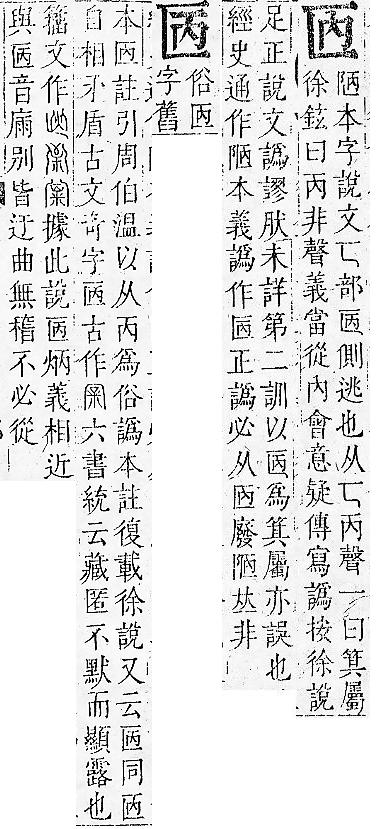 㔷
陋本字說文匸部㔷側逃也从匸丙聲一曰箕屬
徐鉉曰丙非聲義當從內會意疑傳寫譌按徐說
足正說文譌謬肰未詳第二訓以㔷爲箕屬亦誤也
經史通作陋本義譌作㔷正譌必从㔷廢陋𠀤非
㔷
俗㔷
字舊
本㔷註引周伯溫以从丙爲俗譌本註復載徐說又云㔷同㔷
自相矛盾古文奇字㔷古作 六書統云藏匿不默而顯露也
籀文作 據此說㔷炳義相近
與㔷音 別皆迂曲無稽不必從